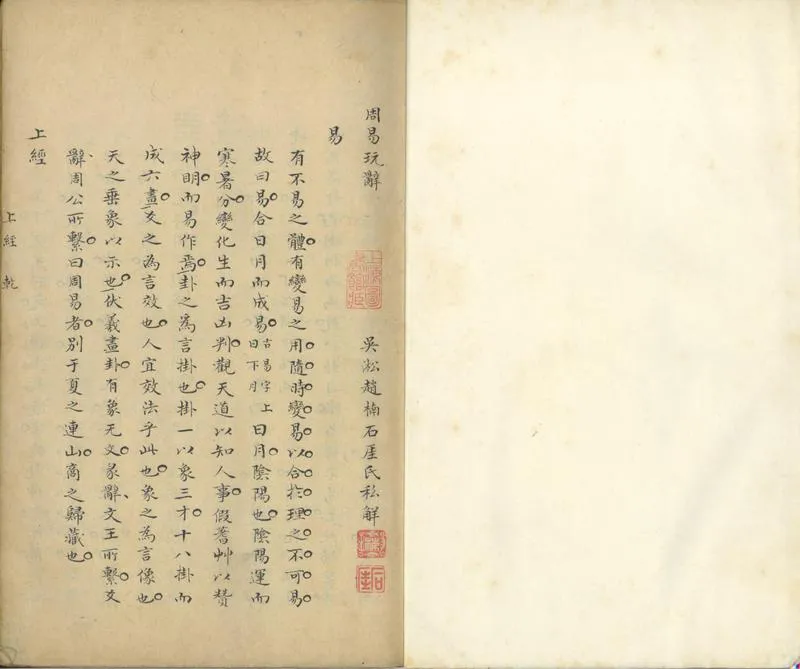 周易玩辭
吳淞趙楠石厓氏私解
易
有不易之體有變易之用隨時變易以合於理之不可易
故曰易合日月而成易古易字上日下月日月陰陽也陰陽運而
寒暑分變化生而吉凶判觀天道以知人事假蓍艸以贊
神明而易作焉卦之為言掛也掛一以象三才十八掛而
成六畫爻之為言效也人宜效法乎此也象之為言像也
天之垂象以示也伏羲畫卦有象无文彖辭文王所繫爻
辭周公所繫曰周易者別于夏之連山商之歸藏也
上經
上經 乾